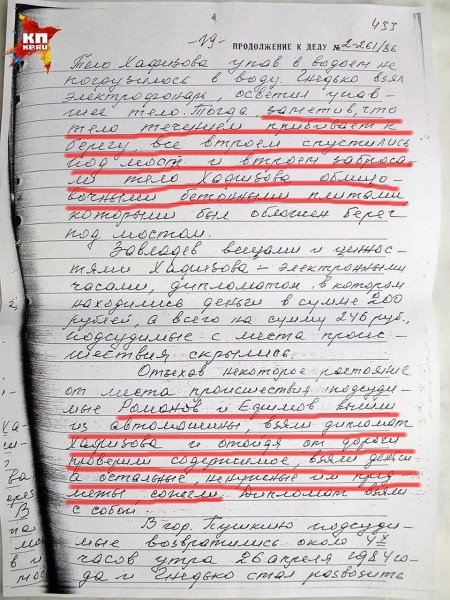 КП
KP.RU
433
-19-
ПРОДОЛЖЕНИЕ К ДЕЛУ №2-261/86
Тело Хафизова упав в водоем не
погрузилось в воду. Гнедько взял
электрофонарь, осветил упав-
шее тело. Тогда, заметив, что
тело течением прибивает к
берегу, все втроем спустились
под мост и втроем заброса-
ли тело Хафизова облицо-
вочными бетонными плитами
которыми был обложен берег
под мостом.
Завладев вещами и ценнос-
тями Хафизова - электронными
часами, дипломатом, в котором
находились деньги в сумме 200
рублей, а всего на сумму 246 руб.,
подсудимые с места проис-
шествия скрылись.
Отъехав некоторое растояние
от места происшествия подсуди-
мые Романов и Ефимов вышли
из автомашины, взяли дипломат
Хафизова и отойдя от дороги
проверили содержимое, взяли деньги
а остальные, ненужные им пред-
меты, сожгли. Дипломат взяли
с собой.
В гор. Пушкино подсуди-
мые возвратились около 4х
часов утра 26 апреля 1984 го-
да и Гнедько стал развозить